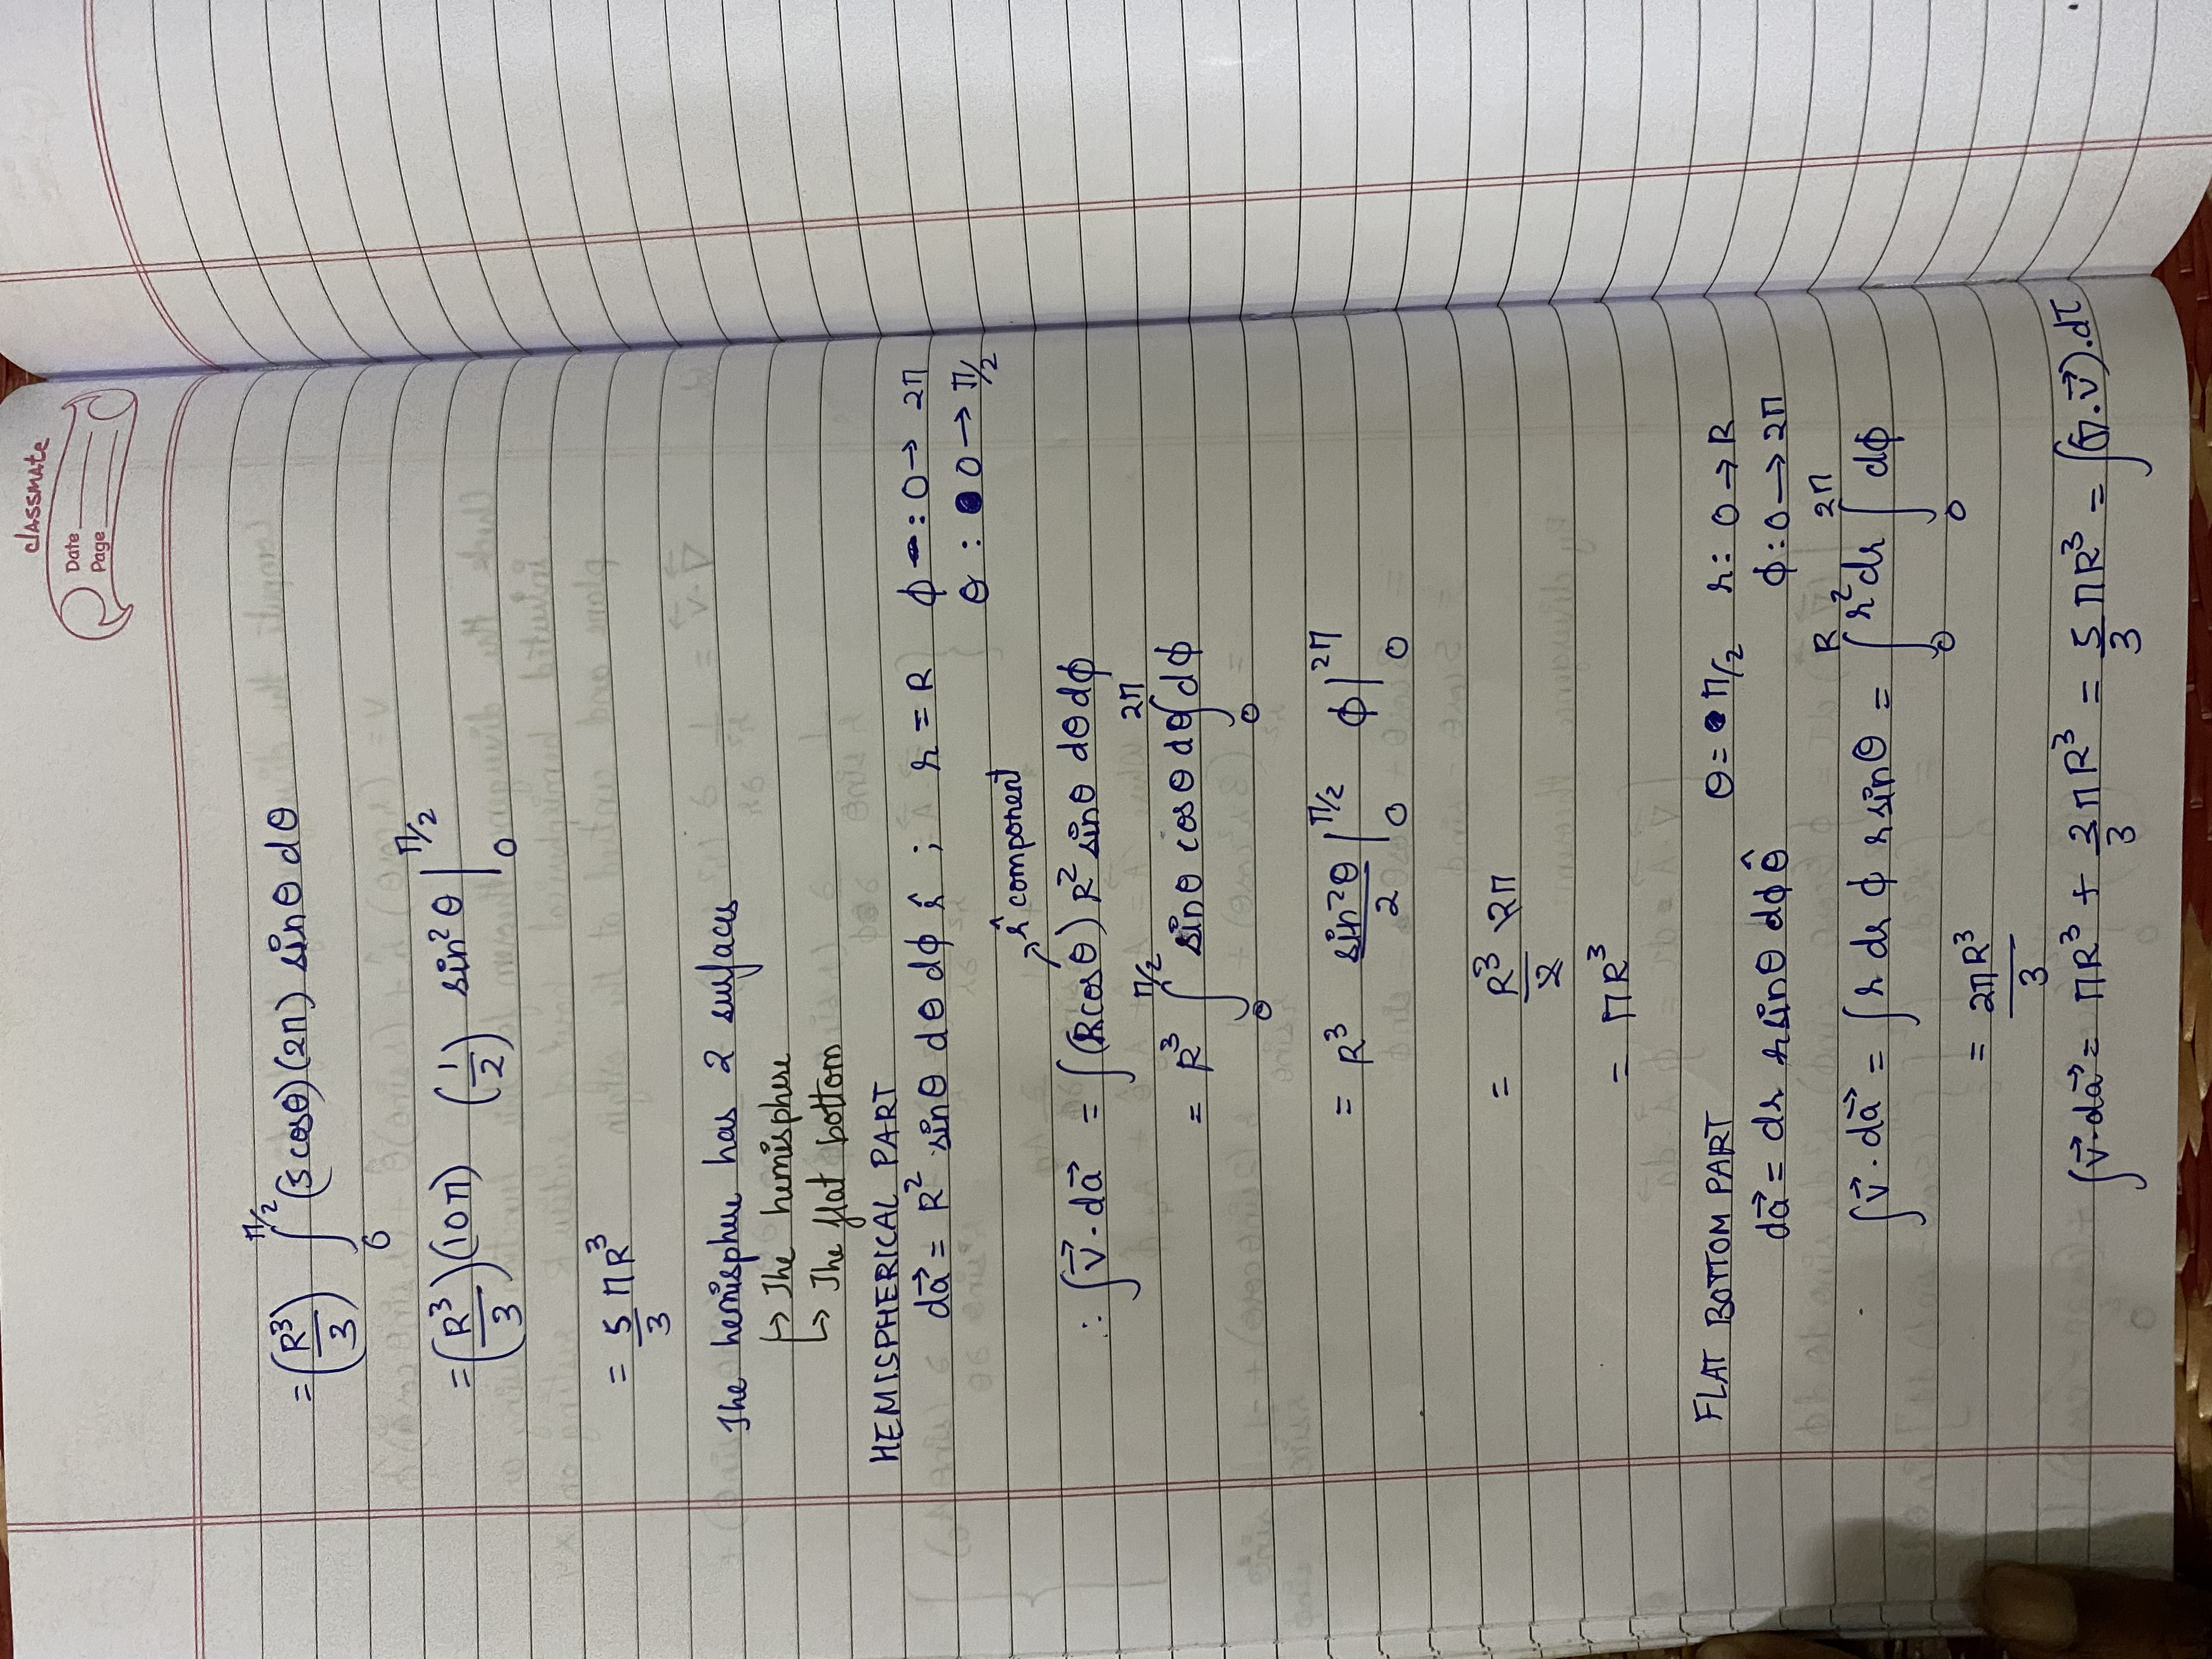 classmate
Date
Page
= (R³/3) ∫₀^{π/2} (5 cosθ)(2π) sinθ dθ
= (R³/3)(10π) (1/2) sin²θ |₀^{π/2}
= 5/3 πR³
The hemisphere has 2 surfaces
↳ The hemisphere
↳ The flat bottom
HEMISPHERICAL PART
da⃗ = R² sinθ dθ dϕ r̂ ; r = R ϕ : 0 → 2π
θ : 0 → π/2
r̂ component
∴ ∫v⃗ · da⃗ = ∫(Rcosθ) R² sinθ dθ dϕ
= R³ ∫₀^{π/2} sinθ cosθ dθ ∫₀^{2π} dϕ
= R³ sin²θ/2 |₀^{π/2} ϕ |₀^{2π}
= R³/2 2π
= πR³
FLAT BOTTOM PART θ = π/2 r : 0 → R
da⃗ = dr r sinθ dϕ θ̂ ϕ : 0 → 2π
∫v⃗ · da⃗ = ∫r dr ϕ r sinθ = ∫₀^R r² dr ∫₀^{2π} dϕ
= 2πR³/3
∫v⃗ · da⃗ = πR³ + 2/3 πR³ = 5/3 πR³ = ∫(∇ · v⃗) . dτ